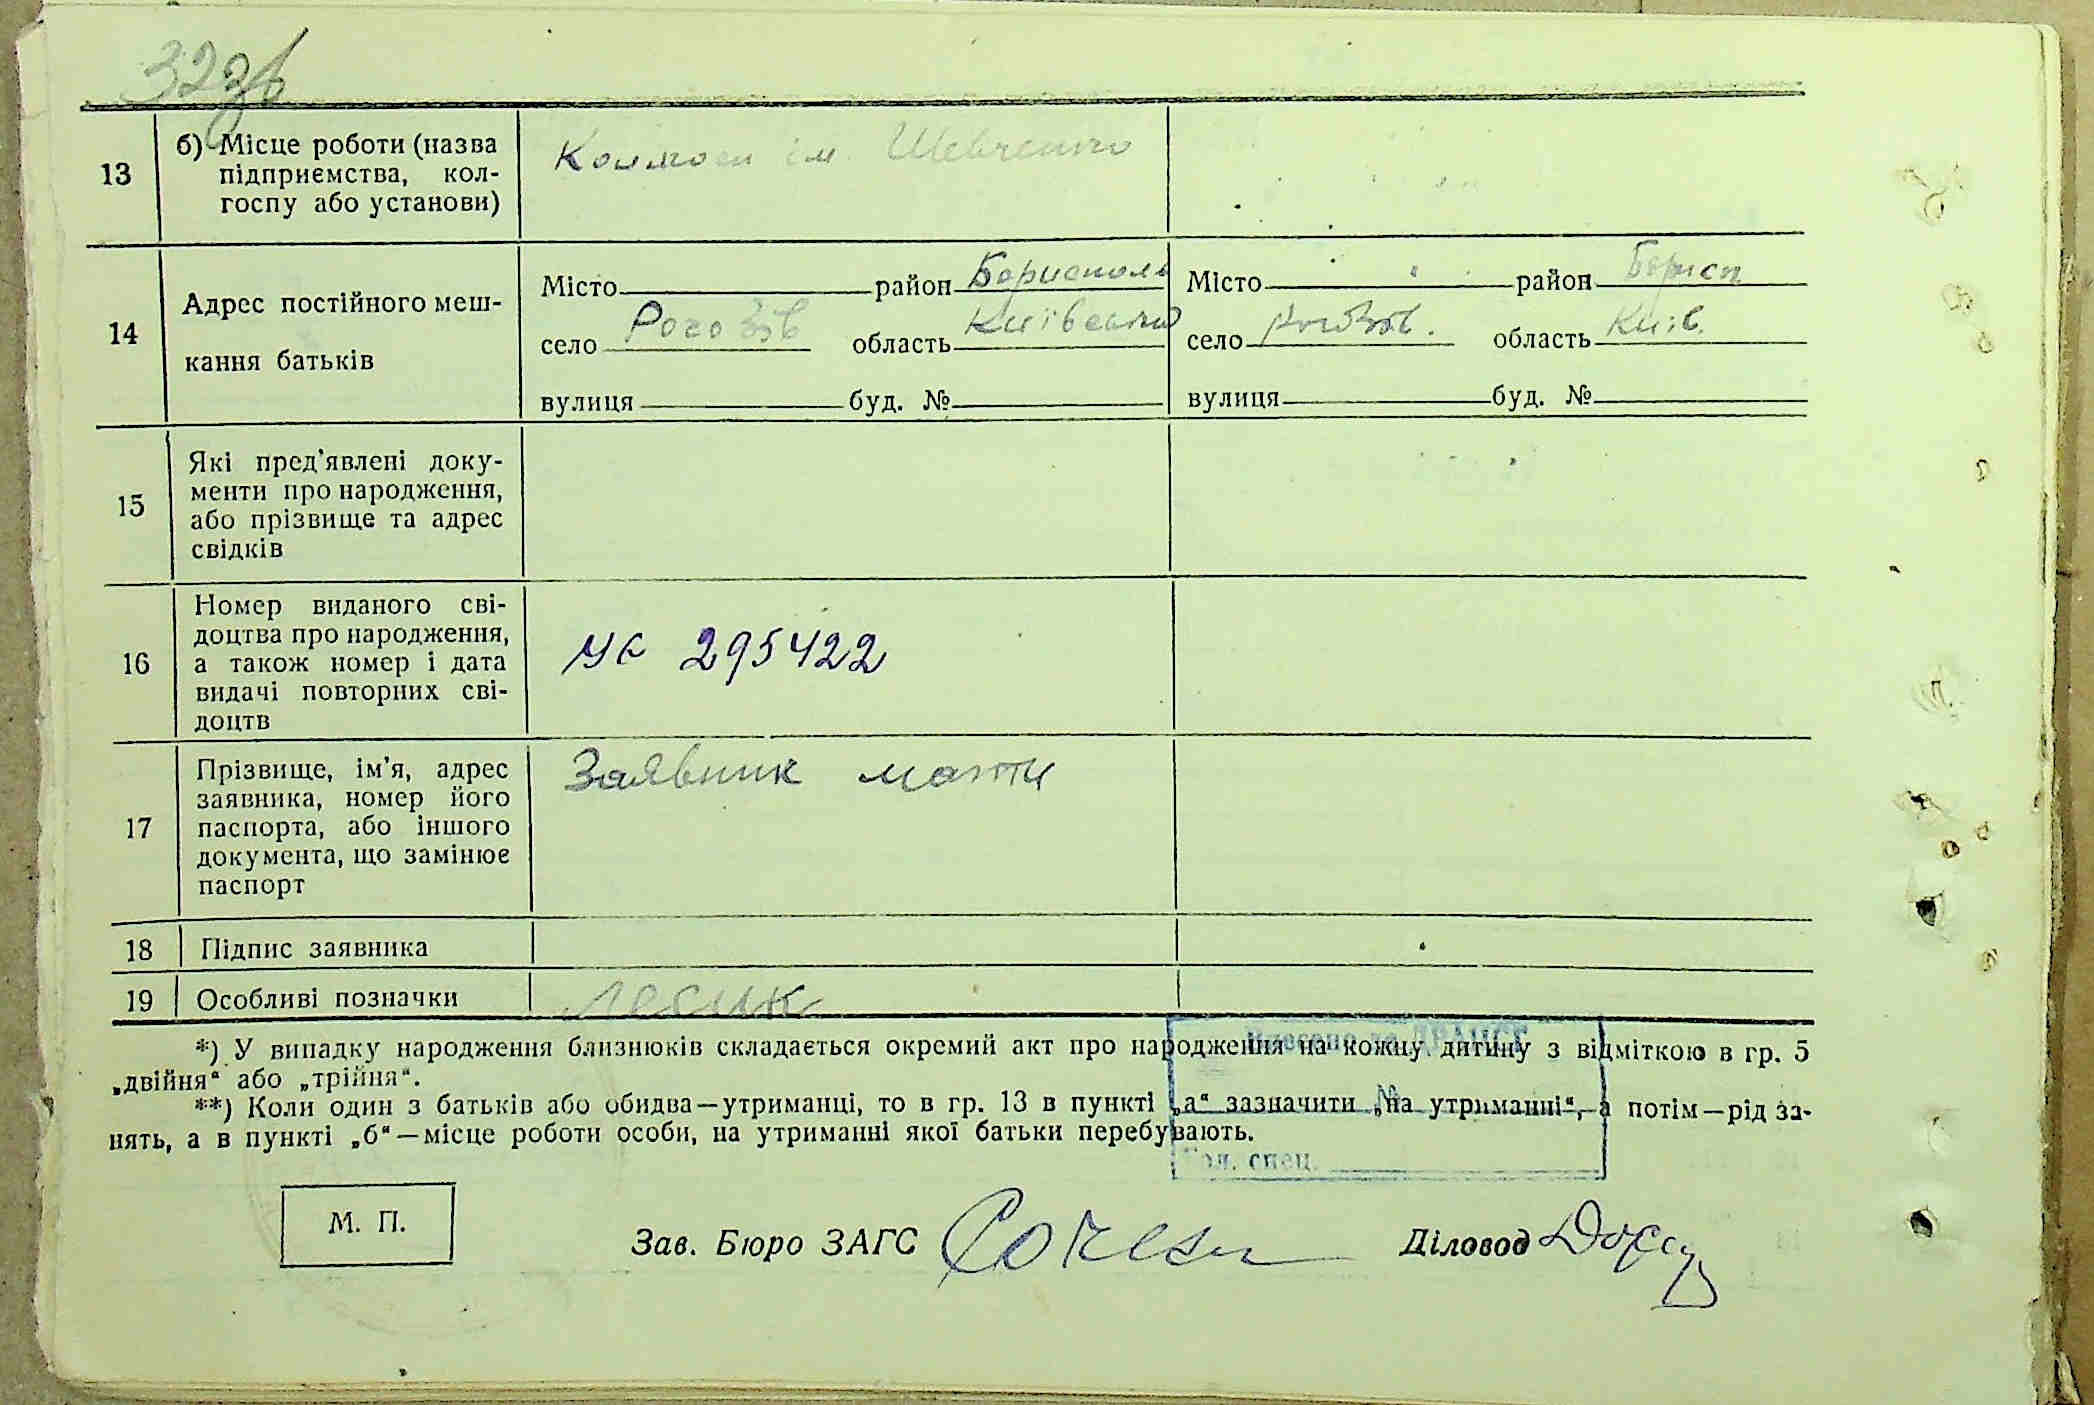 32зв
13
б) Місце роботи (назва
підприємства, кол-
госпу або установи)
Колгосп ім. Шевченко
14
Адрес постійного меш-
кання батьків
Місто район Бориспол
село Рогозів область Київська
вулиця буд. №
Місто район Борисп
село Рогозів. область Київ.
вулиця буд. №
15
Які пред'явлені доку-
менти про народження,
або прізвище та адрес
свідків
16
Номер виданого сві-
доцтва про народження,
а також номер і дата
видачі повторних сві-
доцтв
УК 295422
17
Прізвище, ім'я, адрес
заявника, номер його
паспорта, або іншого
документа, що замінює
паспорт
Заявник мати
18 Підпис заявника
19 Особливі позначки
Лесик
*) У випадку народження близнюків складається окремий акт про народження на кожну дитину з відміткою в гр. 5
„двійня“ або „трійня“.
**) Коли один з батьків або обидва—утриманці, то в гр. 13 в пункті „а“ зазначити „на утриманні“, а потім—рід за-
нять, а в пункті „б“—місце роботи особи, на утриманні якої батьки перебувають.
Внесено до ДРАЦСГ
№
Гол. спец.
М. П.
Зав. Бюро ЗАГС
Діловод